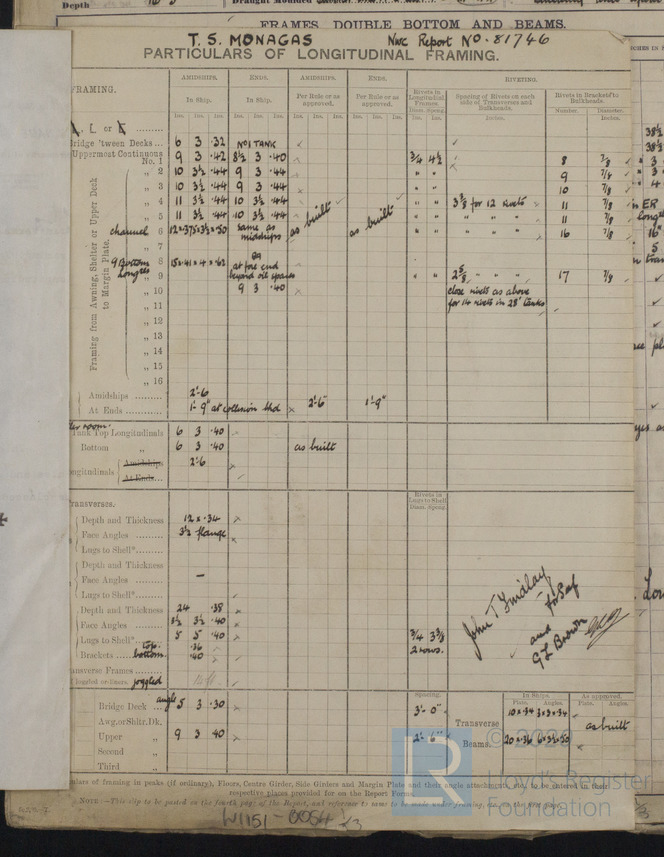 Depth
Draught Moulded
FRAMES, DOUBLE BOTTOM AND BEAMS.
T. S. MONAGAS Nwc Report No. 81746
PARTICULARS OF LONGITUDINAL FRAMING.
FRAMING.
AMIDSHIPS. ENDS. AMIDSHIPS. ENDS. RIVETING.
In Ship. In Ship. Per Rule or as approved. Per Rule or as approved. Rivets in Longitudinal Frames. Spacing of Rivets on each side of Transverses and Bulkheads. Rivets in Brackets to Bulkheads.
Ins. Ins. Ins. Ins. Ins. Ins. Ins. Ins. Ins. Ins. Ins. Ins. Diam. Spcng. Inches. Number. Diameter.
Ins. Ins. Inches.
Bridge 'tween Decks ... 6 3 .32 No1 TANK
Uppermost Continuous
No. 1 9 3 .42 8½ 3 .40 ¾ 4½ 8 7/8
„ 2 10 3½ .44 9 3 .44 " " 9 7/8
„ 3 10 3½ .44 9 3 .44 " " 10 7/8
„ 4 11 3½ .44 10 3½ .44 as built as built " " 3⅜ for 12 rivets 11 7/8
„ 5 11 3½ .44 10 3½ .44 " " " " " 11 7/8
channel „ 6 12×.375×3½×.50 same as midships " " " " " 16 7/8
„ 7
9 Bottom Longls „ 8 15×.41×4×.62
„ 9 at fore end beyond oil spaces " " 2⅝ " " " 17 7/8
„ 10 9 3 .40 close rivets as above for 14 rivets in 28' tanks
„ 11
„ 12
„ 13
„ 14
„ 15
„ 16
Framing from Awning, Shelter or Upper Deck to Margin Plate.
Amidships .......... 2'-6
At Ends .......... 1'-9" at collision bhd 2'-6" 1'-9"
Tank Top Longitudinals 6 3 .40
Bottom „ 6 3 .40 as built
Amidships 2'-6
At Ends...
Transverses. Rivets in Lugs to Shell
Diam. Spcng.
Depth and Thickness 12 × .34
Face Angles ....... 3½ flange
Lugs to Shell*........
Depth and Thickness
Face Angles ....... –
Lugs to Shell*........
Depth and Thickness 24 .38
Face Angles ....... 3½ 3½ .40
Lugs to Shell*........ 5 5 .40 ¾ 3⅜
Brackets ...... top. .36 2 rows.
bottom. .40
Transverse Frames ..........
Joggled or liners. joggled
John T Findlay
for Self
and
G L Brown
Spacing. In Ships. As approved.
Plate. Angles. Plate. Angles.
Bridge Deck ... angle 5 3 .30 3'-0" Transverse 10×.34 3×3×.34
Awg. or Shltr. Dk. as built
Upper „ 9 3 40 2'-6" Beams. 20×.36 6×3½×.50
Second „
Third „
Particulars of framing in peaks (if ordinary), Floors, Centre Girder, Side Girders and Margin Plate and their angle attachments, etc., to be entered in their respective places provided for on the Report Form.
NOTE:—This slip to be pasted on the fourth page of the Report, and reference to same to be made under framing, etc., on the first page.
W1151-0054 1/3
© 2021
Lloyd's Register
Foundation